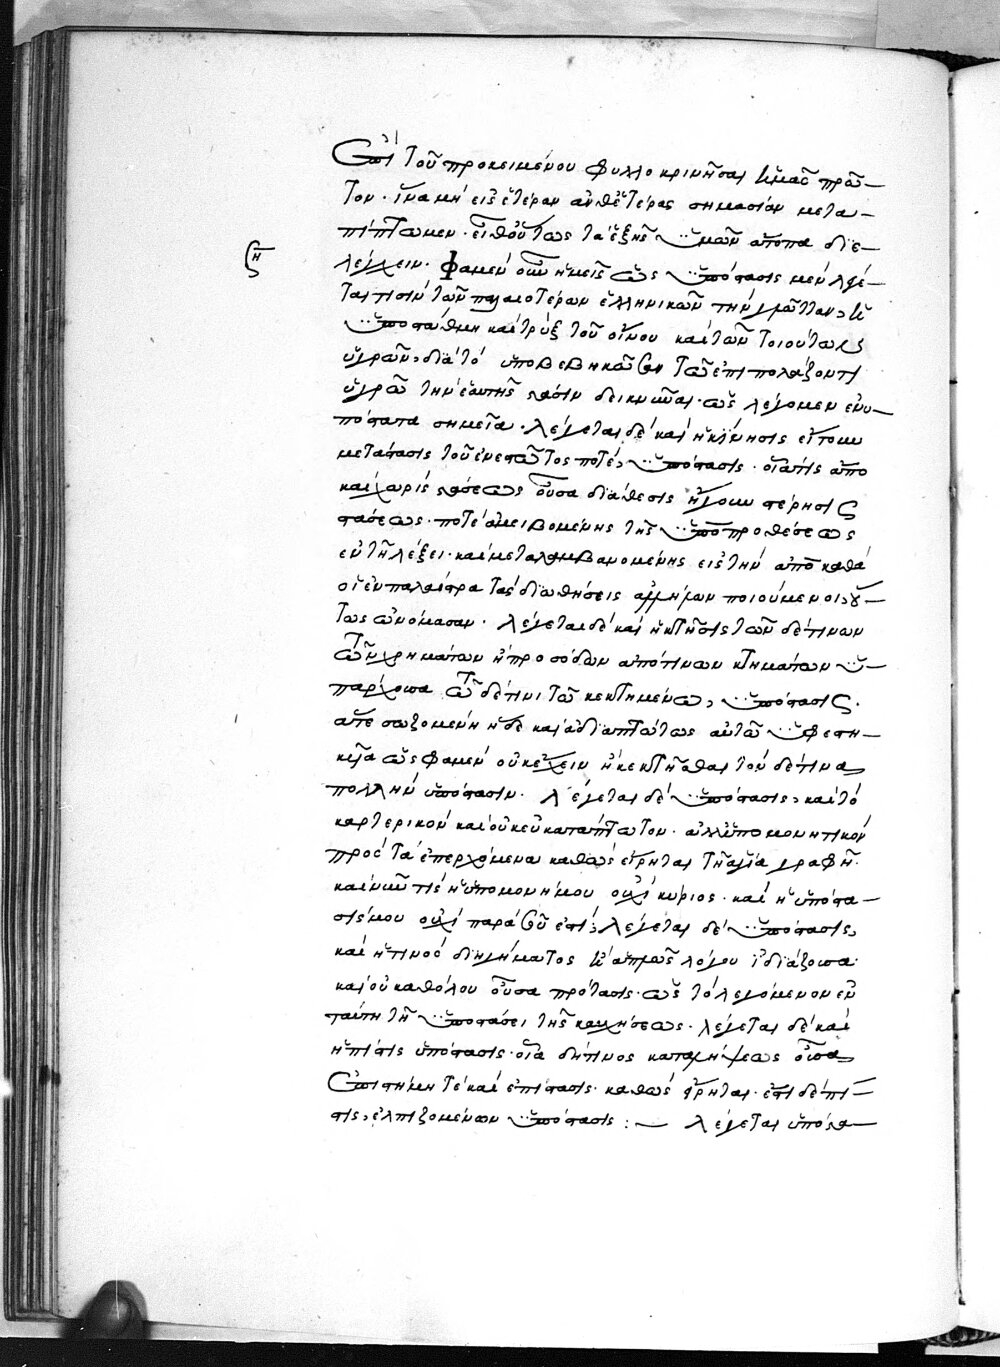 ἐπὶ τοῦ προκειμένου φυλλοκρινῆσαι ἡμᾶς πρῶ-
τον · ἵνα μὴ εἰς ἑτέραν ἀνθ' ἑτέρας σημασίαν μετα-
πίπτωμεν · εἶθ' οὕτως τὰ ἑξῆς ὑμῶν ἄτοπα διε-
λέγχειν · φαμὲν οὖν ἡμεῖς ὡς ὑπόστασις μὲν λέγε-
ται τισὶ τῶν παλαιοτέρων ἑλληνικῶν
ὑποστάθμη καὶ τρὺξ τοῦ οἴνου καὶ τῶν τοιούτων
ὑγρῶν, διὰ τὸ ὑποβεβηκυῖαν τῶ ἐπιπολάζοντι
ὑγρῶ τὴν ἑαυτῆς στάσιν δεικνύναι · ὡς λέγομεν ἐνυ-
πόστατα σημεῖα · λέγεται δὲ καὶ ἡ κίνησις εἴτουν
μετάστασις τοῦ ἐνεστῶτος ποτέ, ὑπόστασις · οἵα τις ἄπο
καὶ χωρὶς στάσεως οὖσα διάθεσις ἤγουν στέρησις
στάσεως · ποτὲ ἀμειβομένης τῆς ὑπὸ προθέσεως
ἐν τῆ λέξει · καὶ μεταλαμβανομένης εἰς τὴν ἀπὸ καθὰ
οἱ ἐν παλαίστρα τὰς διωθήσεις ἀλλήλων ποιούμενοι, οὕ-
τως ὠνόμασαν · λέγεται δὲ καὶ ἡ κτῆσις τῶν δέ τινων
χρημάτων ἢ προσόδων ἀπό τινων κτημάτων ὑ-
πάρχουσα τῶδέ τινι τῶ κεκτημένω, ὑπόστασις ·
ἅτε σωζομένη ἤδη καὶ ἀδιαπτώτως αὐτῶ ὑφεστη-
κυῖα ὥς φαμεν οὐκ ἔχειν ἢ κεκτῆσθαι τὸν δέ τινα
πολλὴν ὑπόστασιν · λέγεται δὲ ὑπόστασις, καὶ τὸ
καρτερικὸν καὶ οὐκ εὐκατάπτωτον · ἀλλ' ὑπομονητικὸν
πρὸς τὰ ἐπερχόμενα καθὼς εἴρηται τῆ ἁγία γραφῆ ·
καὶ νῦν τίς ἡ ὑπομονή μου οὐχὶ κύριος · καὶ ἡ ὑπόστα-
σίς μου οὐχὶ παρὰ σοῦ ἐστί; λέγεται δὲ ὑπόστασις,
καὶ ἥ τινος διηγήματος ἢ ἁπλῶς λόγου ἰδιάζουσα
καὶ οὐ καθόλου οὖσα πρότασις · ὡς τὸ λεγόμενον ἐν
ταύτη τῆ ὑποστάσει τῆς καυχήσεως · λέγεται δὲ καὶ
ἡ πίστις ὑπόστασις · οἷα δή τινος καταλήψεως οὖσα
ἐπιστήμη τὲ καὶ ἐπίστασις · καθὼς εἴρηται · ἔστι δὲ πί-
στις, ἐλπιζομένων ὑπόστασις :— λέγεται ὑπόστα-